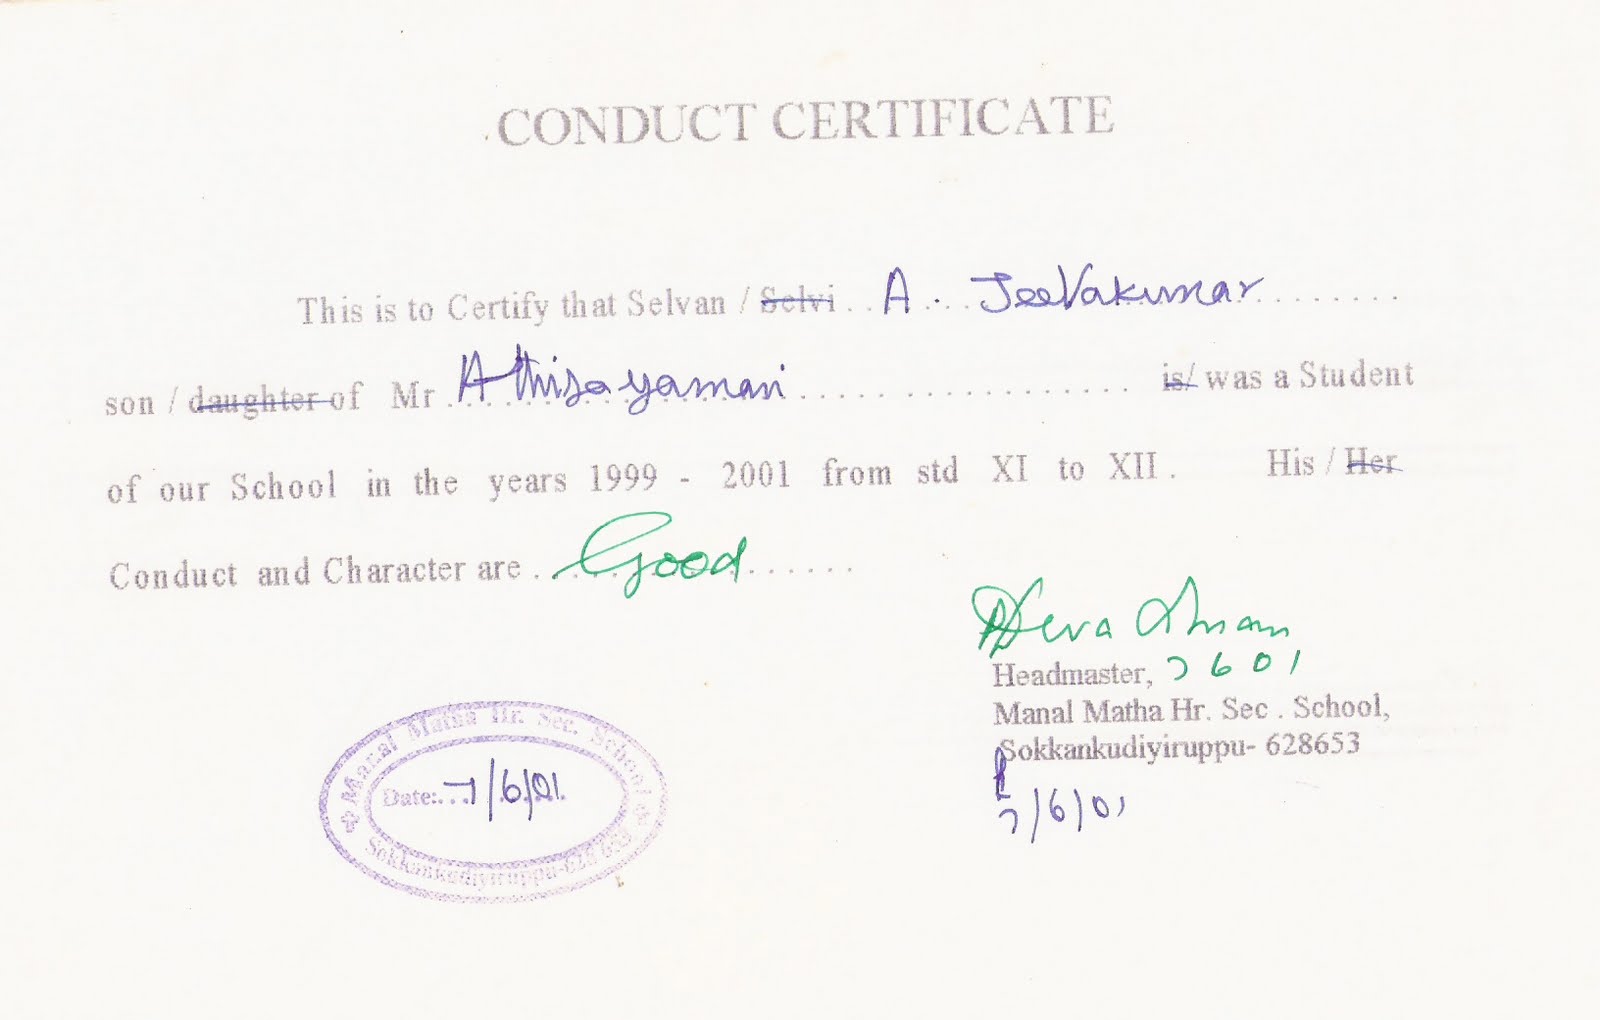 CONDUCT CERTIFICATE
This is to Certify that Selvan / Selvi . . A . . . . JeeVakumar . . . . . . . .
son / daughter of Mr . . Athisayamani . . . . . . . . . . . . . . . . . is/ was a Student
of our School in the years 1999 - 2001 from std XI to XII . His / Her
Conduct and Character are . . . Good . . . . . .
Headmaster, 7 6 01
Manal Matha Hr. Sec . School,
Sokkankudiyiruppu- 628653
7/6/01
Manal Matha Hr. Sec. School
Date:...7/6/01.
Sokkankudiyiruppu-628 653